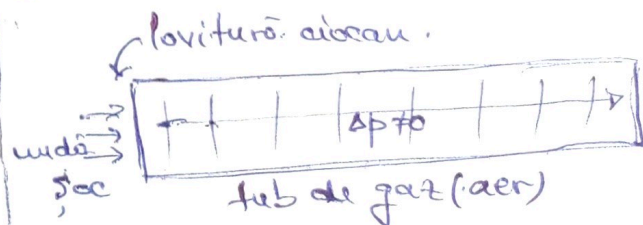 lovitură ciocan.
undă
șoc
Δp≠0
tub de gaz (aer)